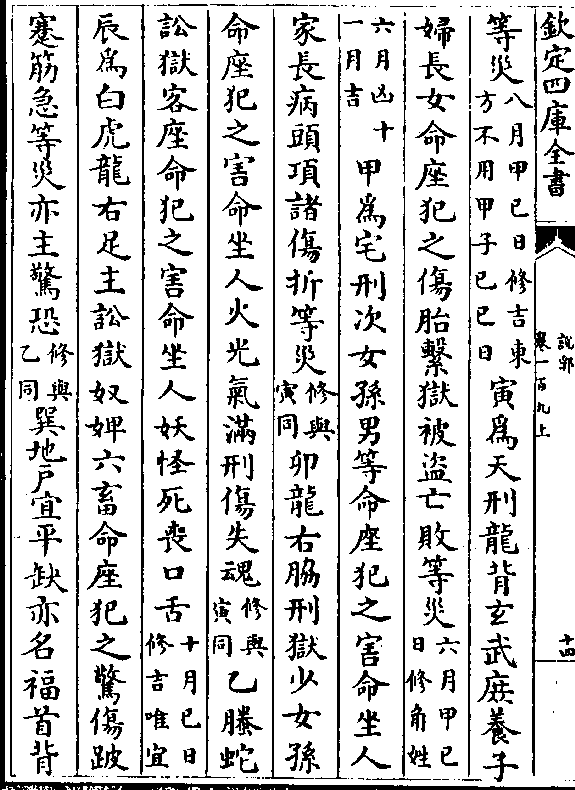 欽定四庫全書
說郛
卷一百九上
十四
等災八月甲己日修吉東方不用甲子己巳日寅為天刑龍背玄武庶養子
婦長女命座犯之傷胎繫獄被盜亡敗等災六月甲己日修角姓
六月凶十一月吉甲為宅刑次女孫男等命座犯之害命坐人
家長病頭項諸傷折等災修與寅同卯龍右脇刑獄少女孫
命座犯之害命坐人火光氣滿刑傷失魂修與寅同乙螣蛇
訟獄客座命犯之害命坐人妖怪死喪口舌十月己日修吉唯宜
辰為白虎龍右足主訟獄奴婢六畜命座犯之驚傷跛
蹇筋急等災亦主驚恐修與乙同巽地戶宜平缺亦名福首背